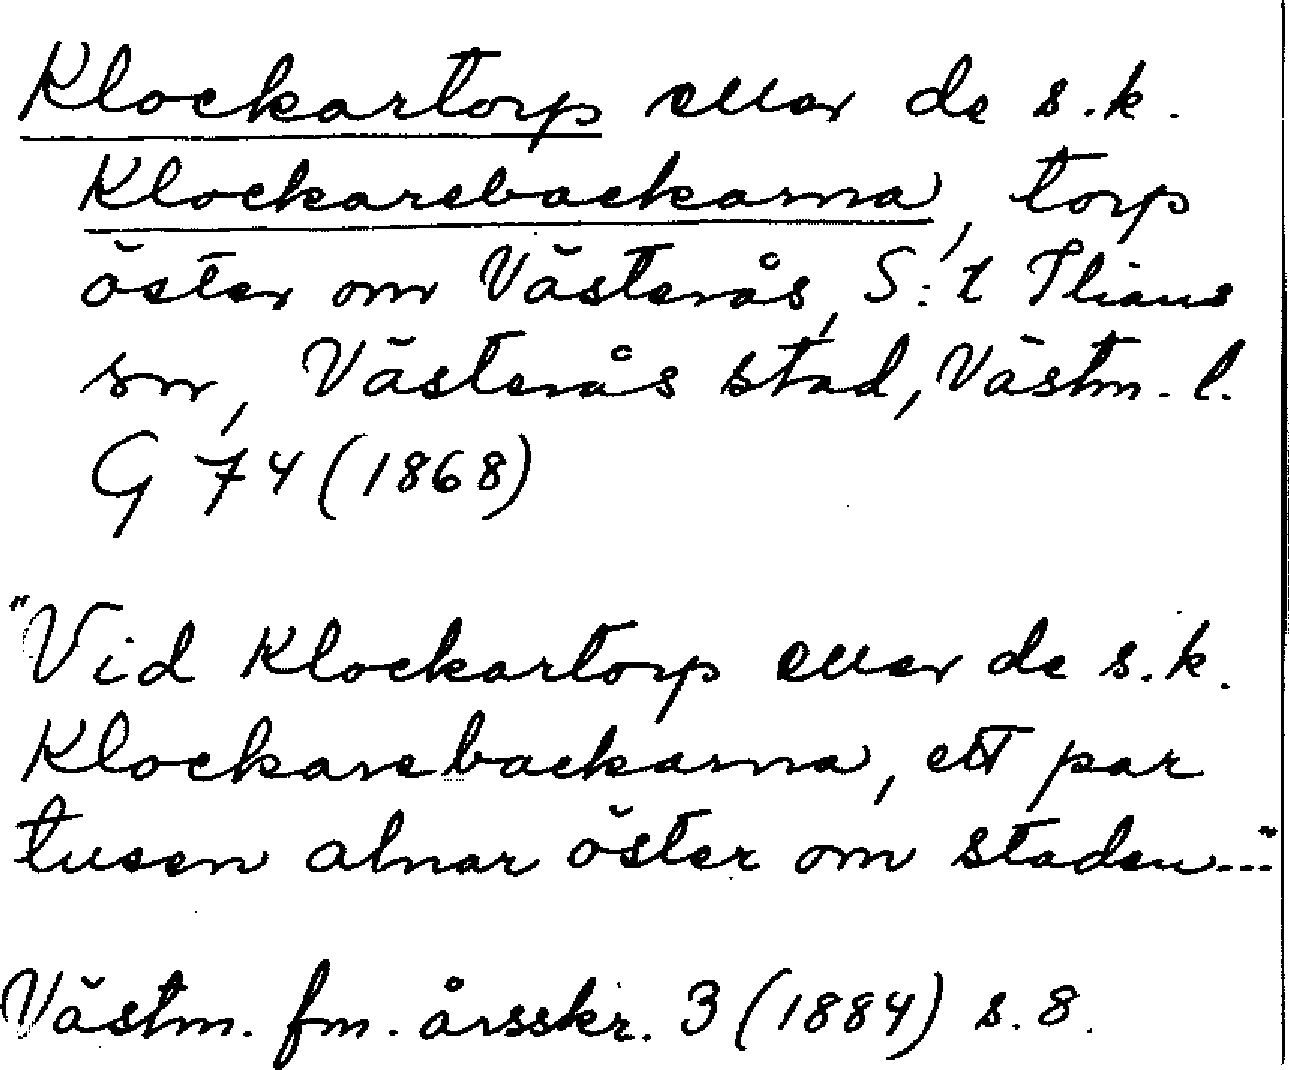 Klockartorp eller de s.k.
Klockarebackarna, torp
öster om Västerås, S:t Ilians
sn, Västerås stad, Västm. l.
G 74 (1868)
"Vid Klockartorp eller de s.k.
Klockarebackarna, ett par
tusen alnar öster om staden..."
Västm. fm. årsskr. 3 (1884) s. 8.